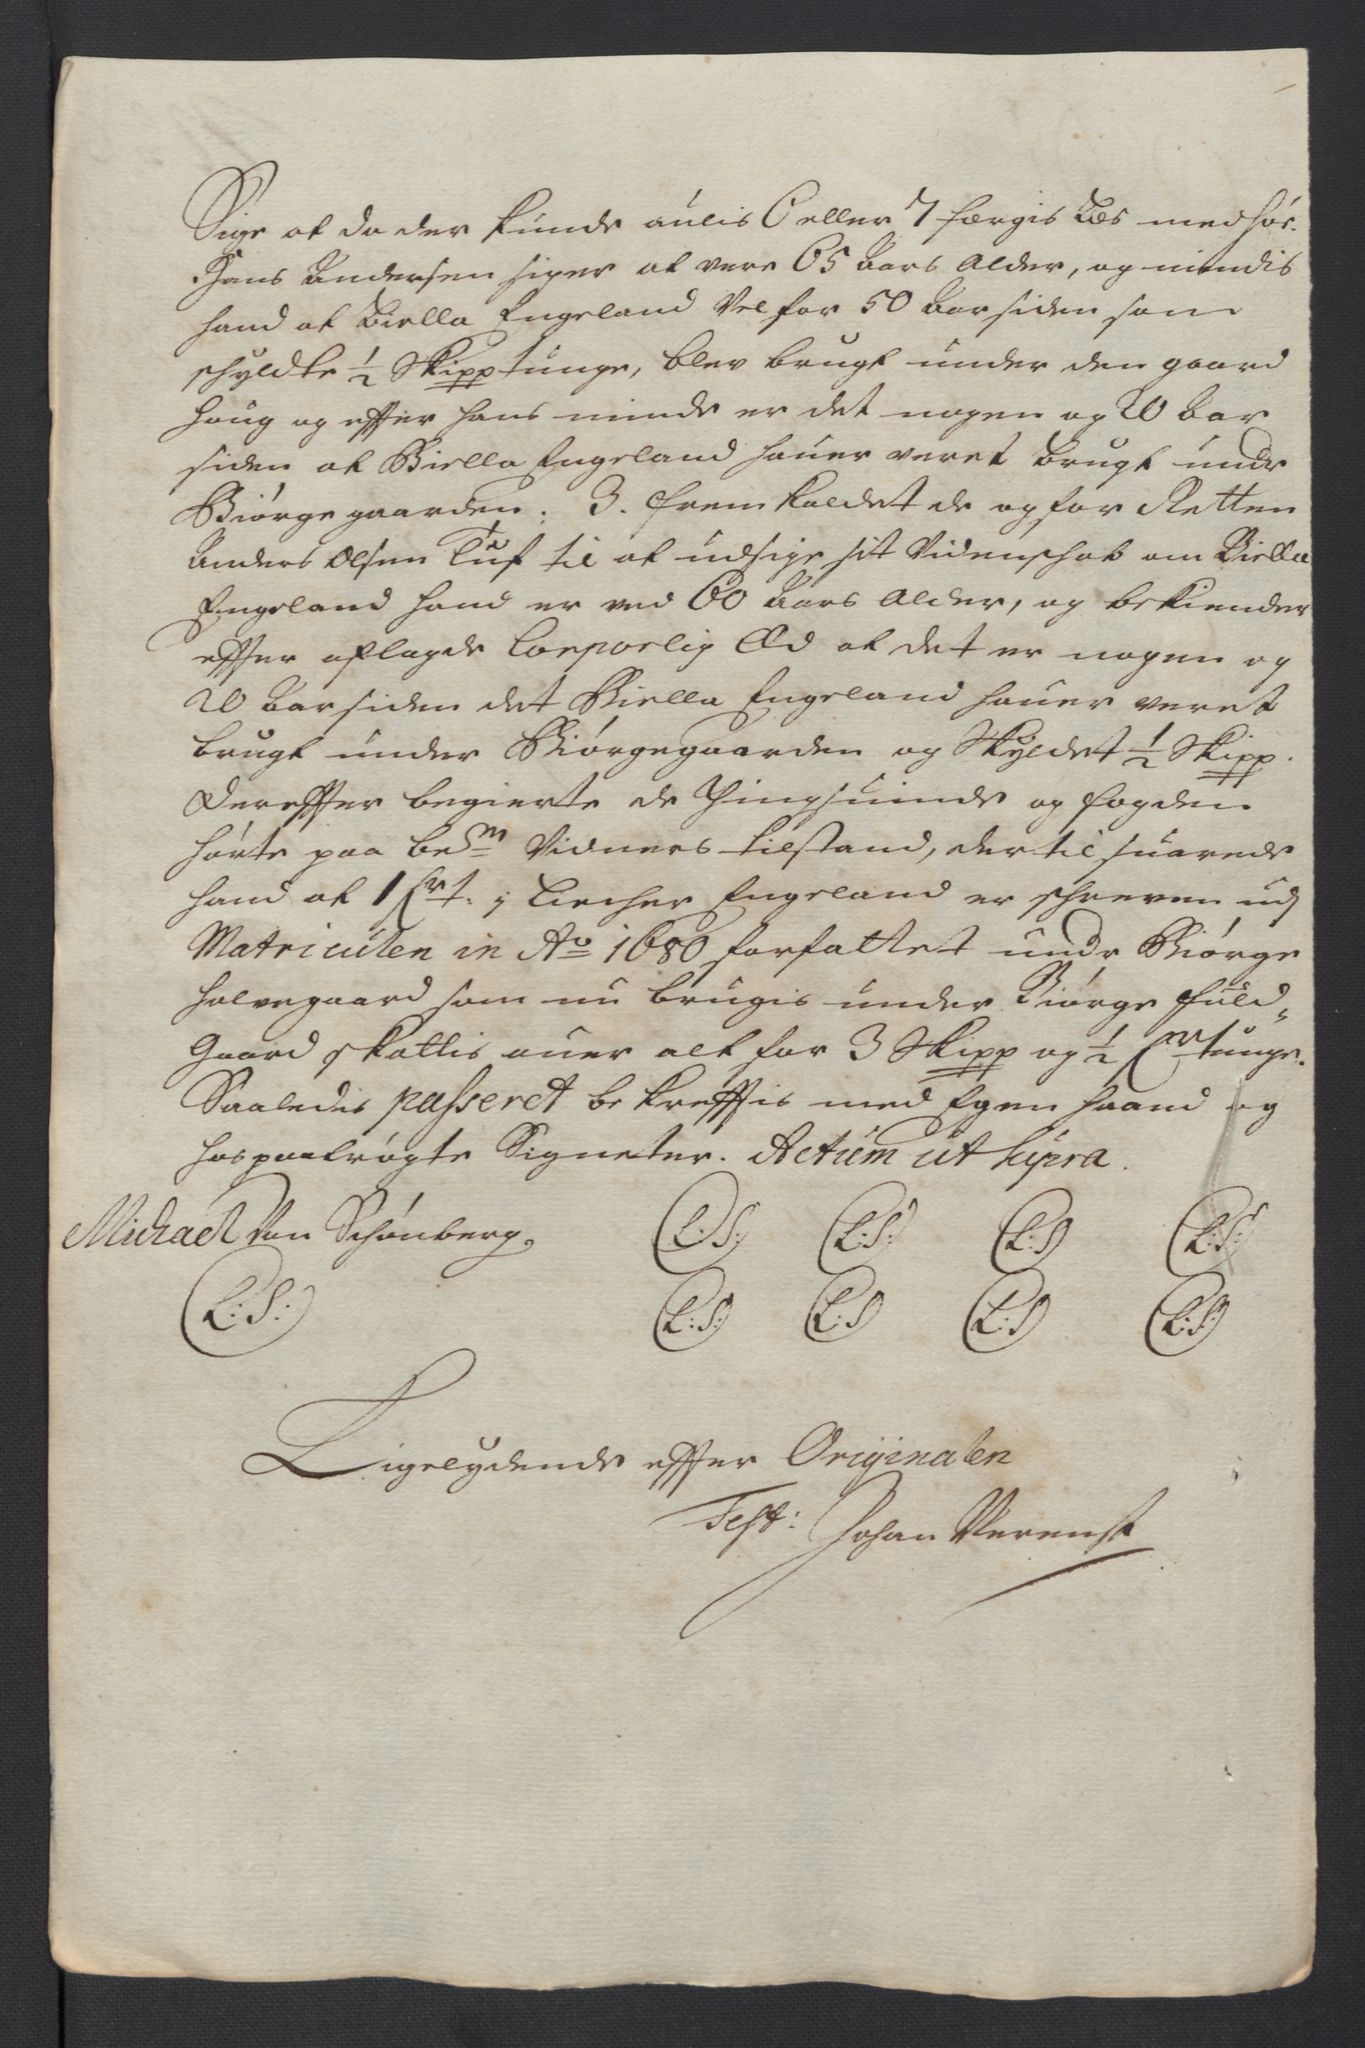 Sige at da der kunde aulis 6 eller 7 færgis Læs med høe.
Hans Andersen siger at vere 65 Aars Alder, og mindis
hand at Biella Engeland Vel for 50 Aar siden som
schyldte ½ Skipptunge, blev brugt under den gaard
Houg og effter hans minde er det nogen og 20 Aar
siden at Biella Engeland hauer veret brugt undr
Biørge gaarden. 3. fremkaldet de og for Retten
Anders Olsen Tuf til at udsige sit Videnschab om Biella
Engeland hand er ved 60 Aars Alder, og bekiender
effter aflagde Corporlig Æd at det er nogen og
20 Aar siden det Biella Engeland hauer veret
brugt under Biørgegaarden og Skyldet ½ Skipp.
Dereffter begierte de Tingsuinde og fogden
hørte paa bem Vidners tilstand, der til suarede
hand at 1 Ert. j Lecher Engeland er schreven ud j
Matriculen in Ao 1680 forfattet undr Biørge
halvegaard som nu brugis under Biørge fuld-
Gaard skattis ouer alt for 3 Skipp og ½ Ertunge.
Saaledis passeret bekreffttis med Egen haand og
hos paatrøgte Signeter. Actum ut supra.
Michael Von Schønberg. (L:S:) (L:S:) (L:S) (L:S:)
(L:S:) (L:S:) (L:S) (L:S) (L:S:)
Ligelydende effter Originalen
Test: Johan Verenst